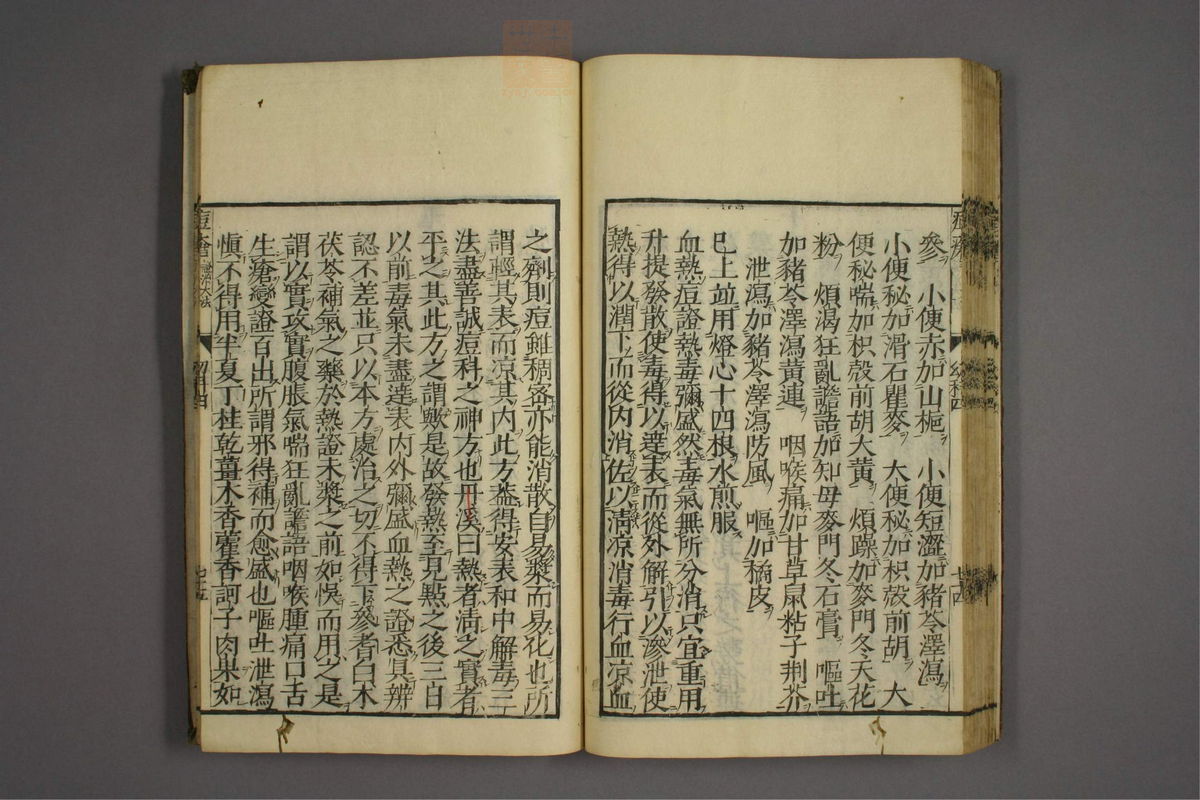 參　小便赤加山梔　小便短澀加豬苓澤瀉
小便秘加滑石瞿麥　大便秘加枳殻前胡　大
便秘喘加枳殻前胡大黄　煩躁加麥門冬天花
粉　煩渴狂亂譫語加知母麥門冬石膏　嘔吐
加豬苓澤瀉黄連　咽喉痛加甘草鼠粘子荆芥
泄瀉加豬苓澤瀉防風　嘔加橘皮
已上並用燈心十四根水煎服
血熱痘證熱毒彌盛然毒氣無所分消只宜重用
升提發散使毒得以達表而從外解引以滲泄使
熱得以潤下而從内消佐以清凉消毒行血凉血
之劑則痘雖稠宻亦能消散自易漿而易化也所
謂輕其表而凉其内此方葢得安表和中解毒三
法盡善誠痘科之神方也丹溪曰熱者清之實者
平之其此方之謂歟是故發熱至見點之後三日
以前毒氣未盡達表内外彌盛血熱之證悉具辨
認不差並只以本方處治之切不得下參耆白术
茯苓補氣之藥於熱證未漿之前如悞而用之是
謂以實攻實腹脹氣喘狂亂譫語咽喉腫痛口舌
生瘡變證百出所謂邪得補而愈盛也嘔吐泄瀉
愼不得用半夏丁桂乾薑木香藿香訶子肉果如
痘瘡
幼科四
七十四